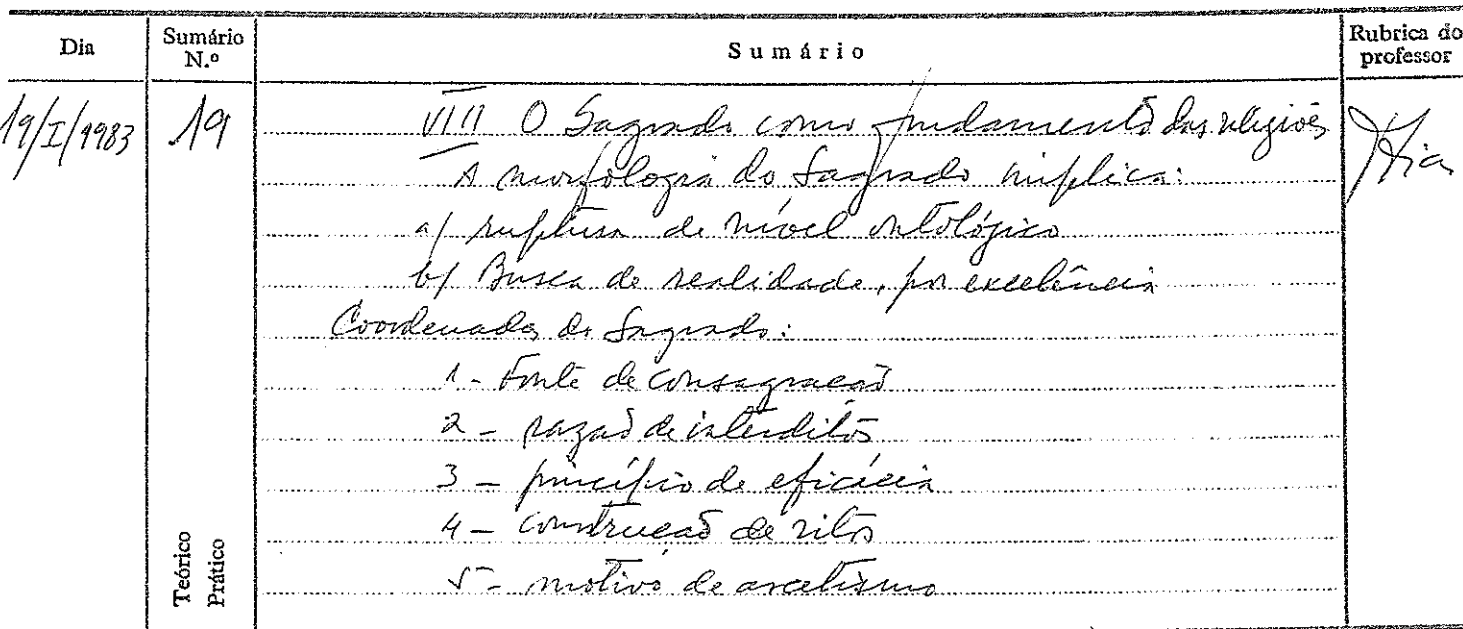 Dia
Sumário N.º
Sumário
Rubrica do professor
19/I/1983
19
VIII O Sagrado como fundamento das religiões
A morfologia do Sagrado implica:
a) ruptura de nível ontológico
b) Busca de realidade, por excelência
Coordenadas do Sagrado:
1 - Fonte de consagração
2 - razão de interditos
3 - princípio de eficácia
4 - construção de ritos
5 - motivo de ascetismo
Teórico
Prático